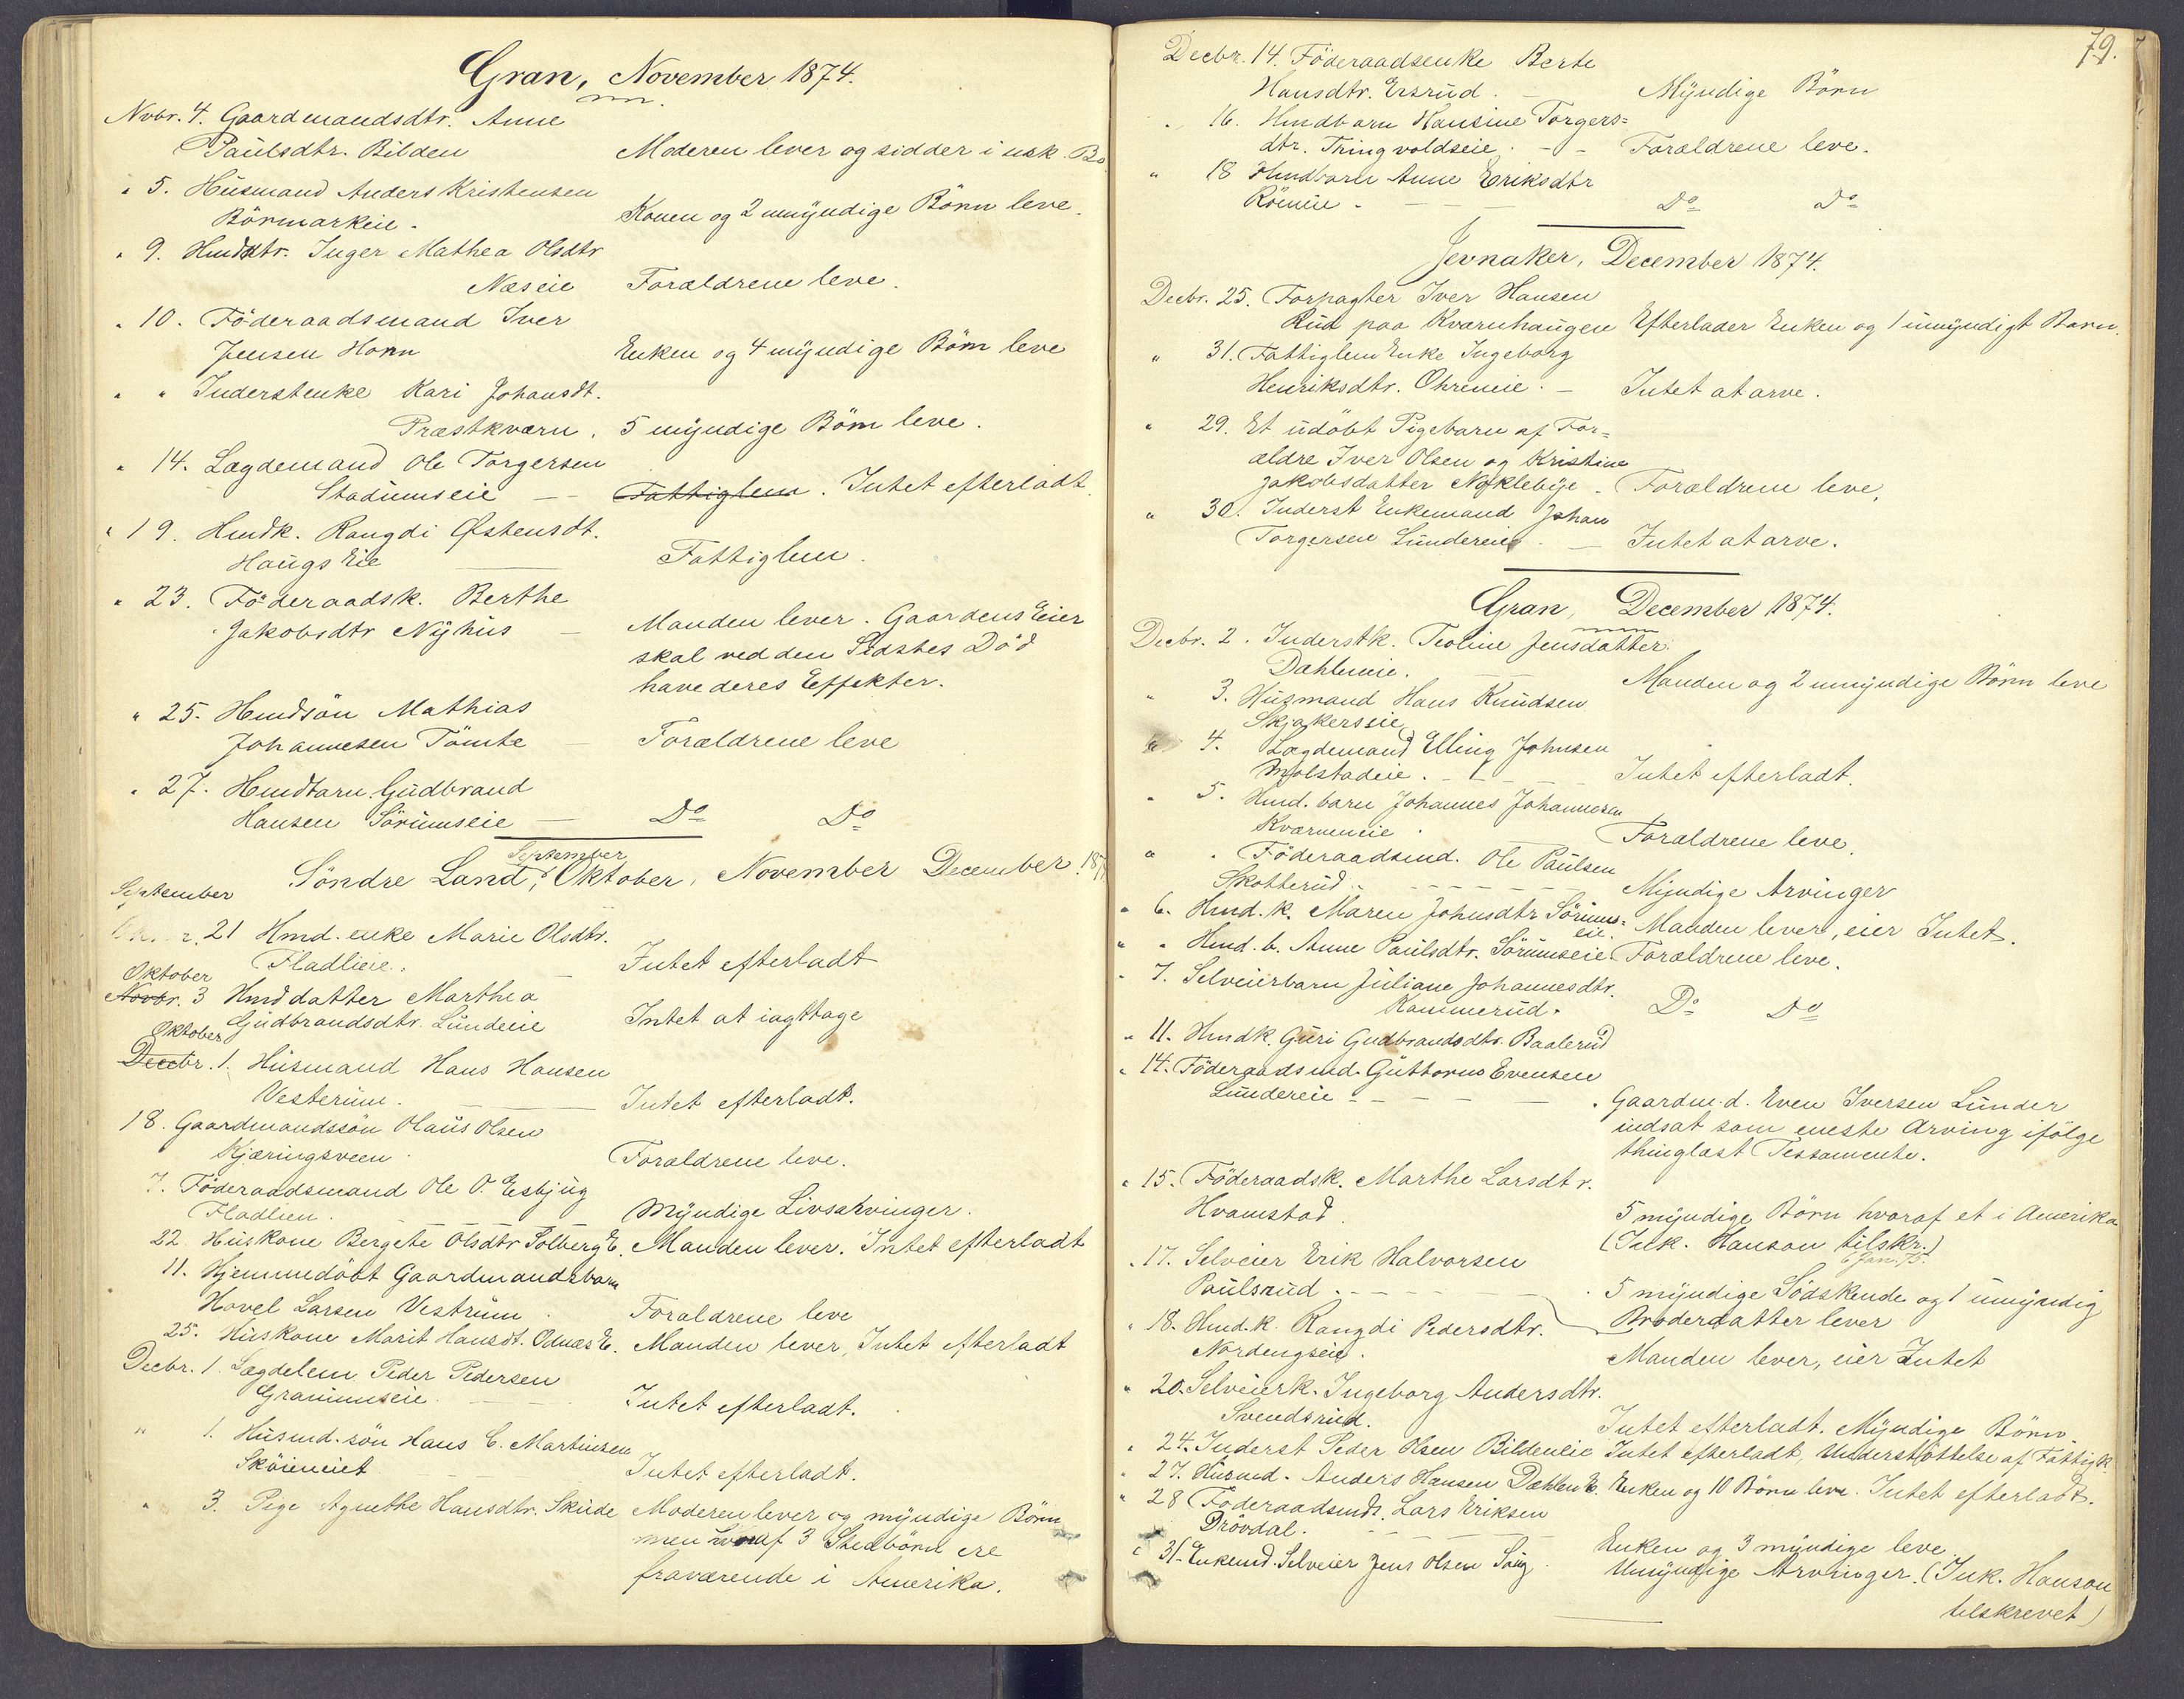 Gran, November 1874.
Nvbr. 4. Gaardmandsdtr. Anne
Paulsdtr. Bilden Moderen lever og sidder i usk. Bo
" 5. Husmand Anders Kristensen
Börmarkeie. Konen og 2 umyndige Börn leve.
" 9. Hmdsdtr. Inger Mathea Olsdtr
Næseie Forældrene leve.
" 10. Föderaadsmand Iver
Jensen Horn Enken og 4 myndige Börn leve
" " Inderstenke Kari Johansdt.
Præstkværn. 5 myndige Börn leve.
" 14. Lægdemand Ole Torgersen
Stadumseie — Fattiglem. Intet efterladt.
" 19. Hmdk. Rangdi Østensdt.
Haugs Eie Fattiglem.
" 23. Föderaadsk. Berthe
Jakobsdtr Nyhus — Manden lever. Gaardens Eier
skal ved den Sidstes Död
have deres Effekter.
" 25. Hmdsön Mathias
Johannesen Tömte — Forældrene leve
" 27. Hmdbarn Gudbrand
Hansen Sörumseie — Do Do
September
Söndre Land, Oktober, November December 187
September
21 Hmd. enke Marie Olsdtr.
Fladlieie. — Intet efterladt
Oktober
Novbr. 3 Hmddatter Marthea
Gudbrandsdtr. Lundeie Intet at iagttage
Oktober
Decbr. 1. Husmand Hans Hansen
Vesterum. — Intet efterladt.
18. Gaardmandssön Olaus Olsen
Kjæringsveen. Forældrene leve.
7. Föderaadsmand Ole O. Esbjug
Fladlien. Myndige Livsarvinger.
22. Huskone Bergete Olsdtr Solberg E. Manden lever. Intet efterladt
11. Hjemmedöbt Gaardmandsbarn
Hovel Larsen Vestrum. Forældrene leve
25. Huskone Marit Hansdt. Odnæs E. Manden lever, Intet efterladt
Decbr. 1. Lægdelem Peder Pedersen
Granumseie. Intet efterladt.
" 1. Husmd. sön Hans C. Martinsen
Sköieneiet Intet efterladt.
" 3. Pige Agnethe Hansdtr. Skude Moderen lever og myndige Börn
men hvoraf 3 Stedbörn ere
fraværende i Amerika.
79.
Decbr. 14. Föderaadsenke Berte
Hansdtr. Ersrud. — Myndige Börn
" 16. Hmdbarn Hansine Torgers=
dtr. Tringvoldseie. - - Forældrene leve.
" 18 Hmdbarn Anne Eriksdtr
Röeneie - Do Do
Jevnaker, December 1874.
Decbr. 25. Forpagter Iver Hansen
Rud paa Kværnhaugen Efterlader Enken og 1 umyndigt Barn.
" 31. Fattiglem Enke Ingeborg
Henriksdtr. Ohreneie. — Intet at arve.
" 29. Et udöbt Pigebarn af For=
ældre Iver Olsen og Kristine
Jakobsdatter Nøklebye - Forældrene leve,
" 30. Inderst Enkemand Johan
Torgersen Lundereie. — Intet at arve.
Gran, December 1874.
Decbr. 2. Inderstk. Teoline Jensdatter
Dahleneie. Manden og 2 umyndige Börn leve
" 3. Husmand Hans Knudsen
Skjakerseie
" 4. Lægdemand Elling Johnsen
Molstadeie. Intet efterladt.
" 5. Hmd. barn Johannes Johannesen
Kværneneie. Forældrene leve.
" " Föderaadsmd. Ole Paulsen
Skotterud. Myndige Arvinger
" 6. Hmd. k. Maren Johnsdtr Sörums=
eie. Manden lever, eier Intet.
" " Hmd. b. Anne Paulsdtr. Sörumseie. Forældrene leve.
" 7. Selveierbarn Juliane Johannesdtr.
Kammerud. Do Do
" 11. Hmdk. Guri Gudbrandsdtr. Baalerud
" 14. Föderaadsmd. Guttorms Evensen
Lundereie - Gaardm.d. Even Iversen Lunder
indsat som eneste Arving ifölge
thinglæst Testamente.
" 15. Föderaadsk. Marthe Larsdtr.
Hvamstad. 5 myndige Börn hvoraf et i Amerika
(Ink. Hanson tilskr.)
6 Jan. 75.
" 17. Selveier Erik Halvorsen
Paulsrud. 5 myndige Södskende og 1 umyndig
Broderdatter lever
" 18. Hmd. k. Rangdi Pedersdtr.
Nordengseie. Manden lever, eier Intet
" 20. Selveierk. Ingeborg Andersdtr.
Svendsrud. Intet efterladt. Myndige Börn.
" 24. Inderst Peder Olsen Bildeneie Intet efterladt, Understöttelse af Fattigk.
" 27. Husmd. Anders Hansen Dæhlen E. Enken og 10 Börn leve. Intet efterladt.
" 28 Föderaadsmd. Lars Eriksen
Prövdal. Enken og 3 myndige leve
" 31. Enkemd. Selveier Jens Olsen Solig. Umyndige Arvinger. (Ink. Hanson
tilskrevet)